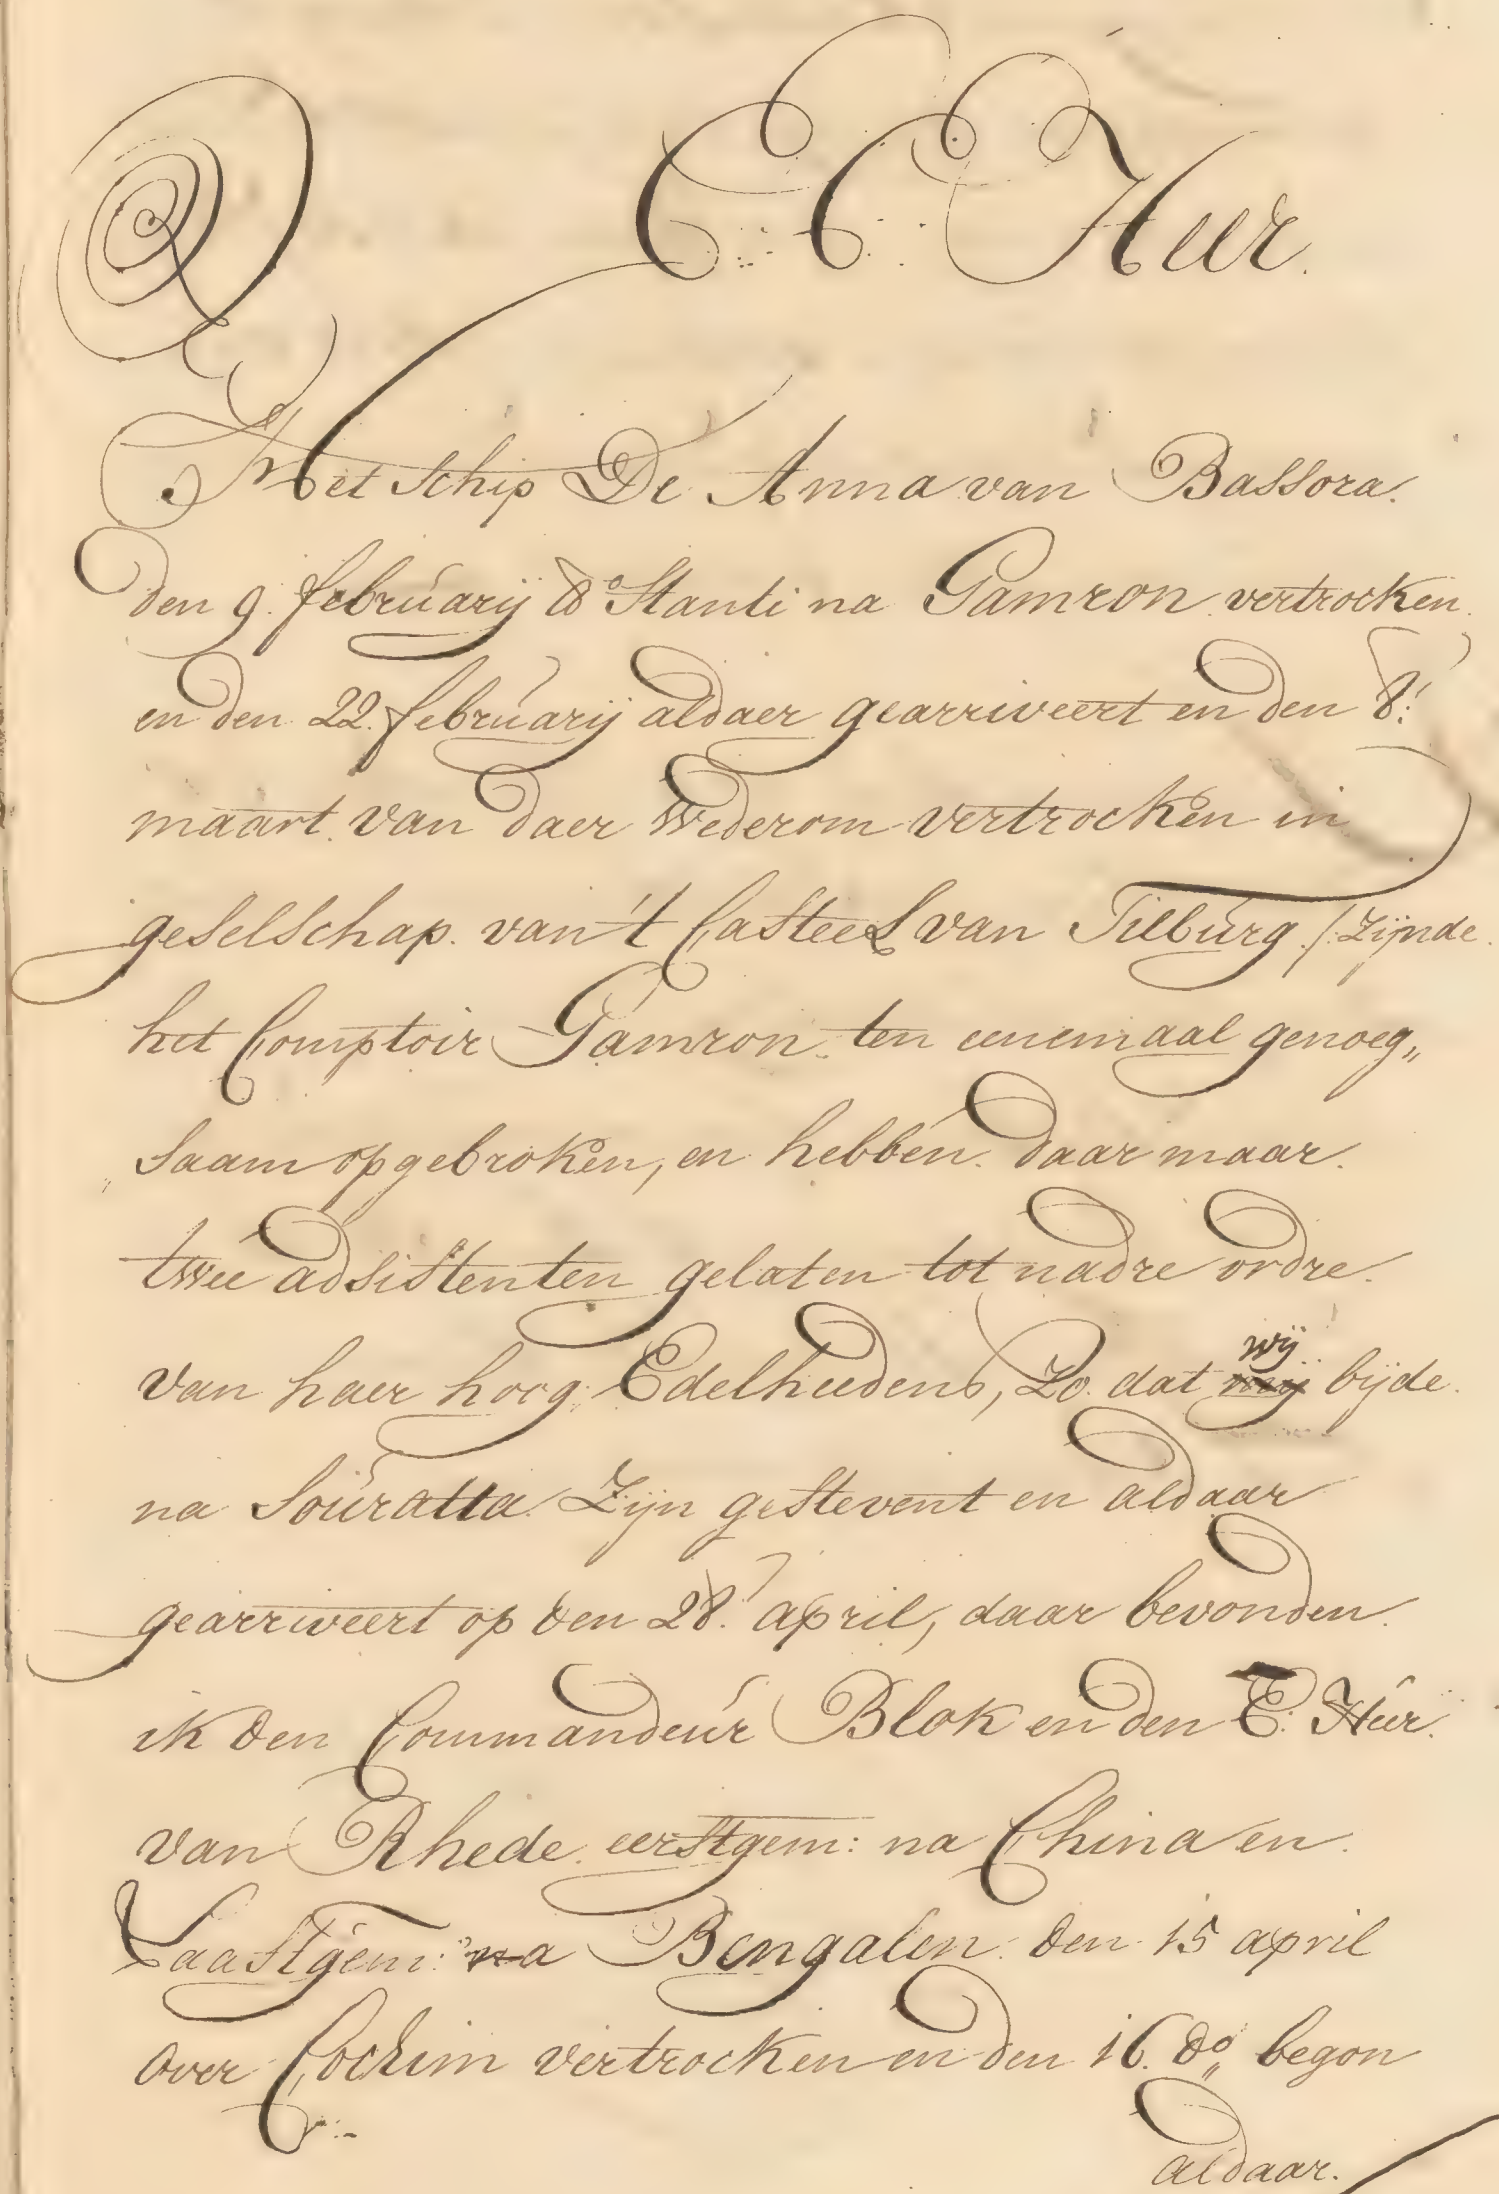 E: E: Heer.
Met Schip De Anna van Bassora.
den 9. februarij d:o Stanti na Gamron vertrocken
en den 22. februarij aldaer gearriveert en den 8.'
maart van daer wederom vertrocken in
geselschap. van 't Casteel van Tilburg /:Zijnde
het Comptoir Gamron ten eenemaal genoeg„
„saam opgebroken, en hebben daar maar
twee adsistenten gelaten tot nadre ordre.
van haer hoog: Edelheedens, Zo dat wij bijde
na Souratta Zijn gestevent en aldaar
gearriveert op den 28.' april, daar bevonden
ik den Commandeur Blok en den E: Heer
van Rhede eerstgem: na China en
Laastgem: na Bengalen den 15 april
over Cochim vertrocken en den 16. d:o begon
aldaar.